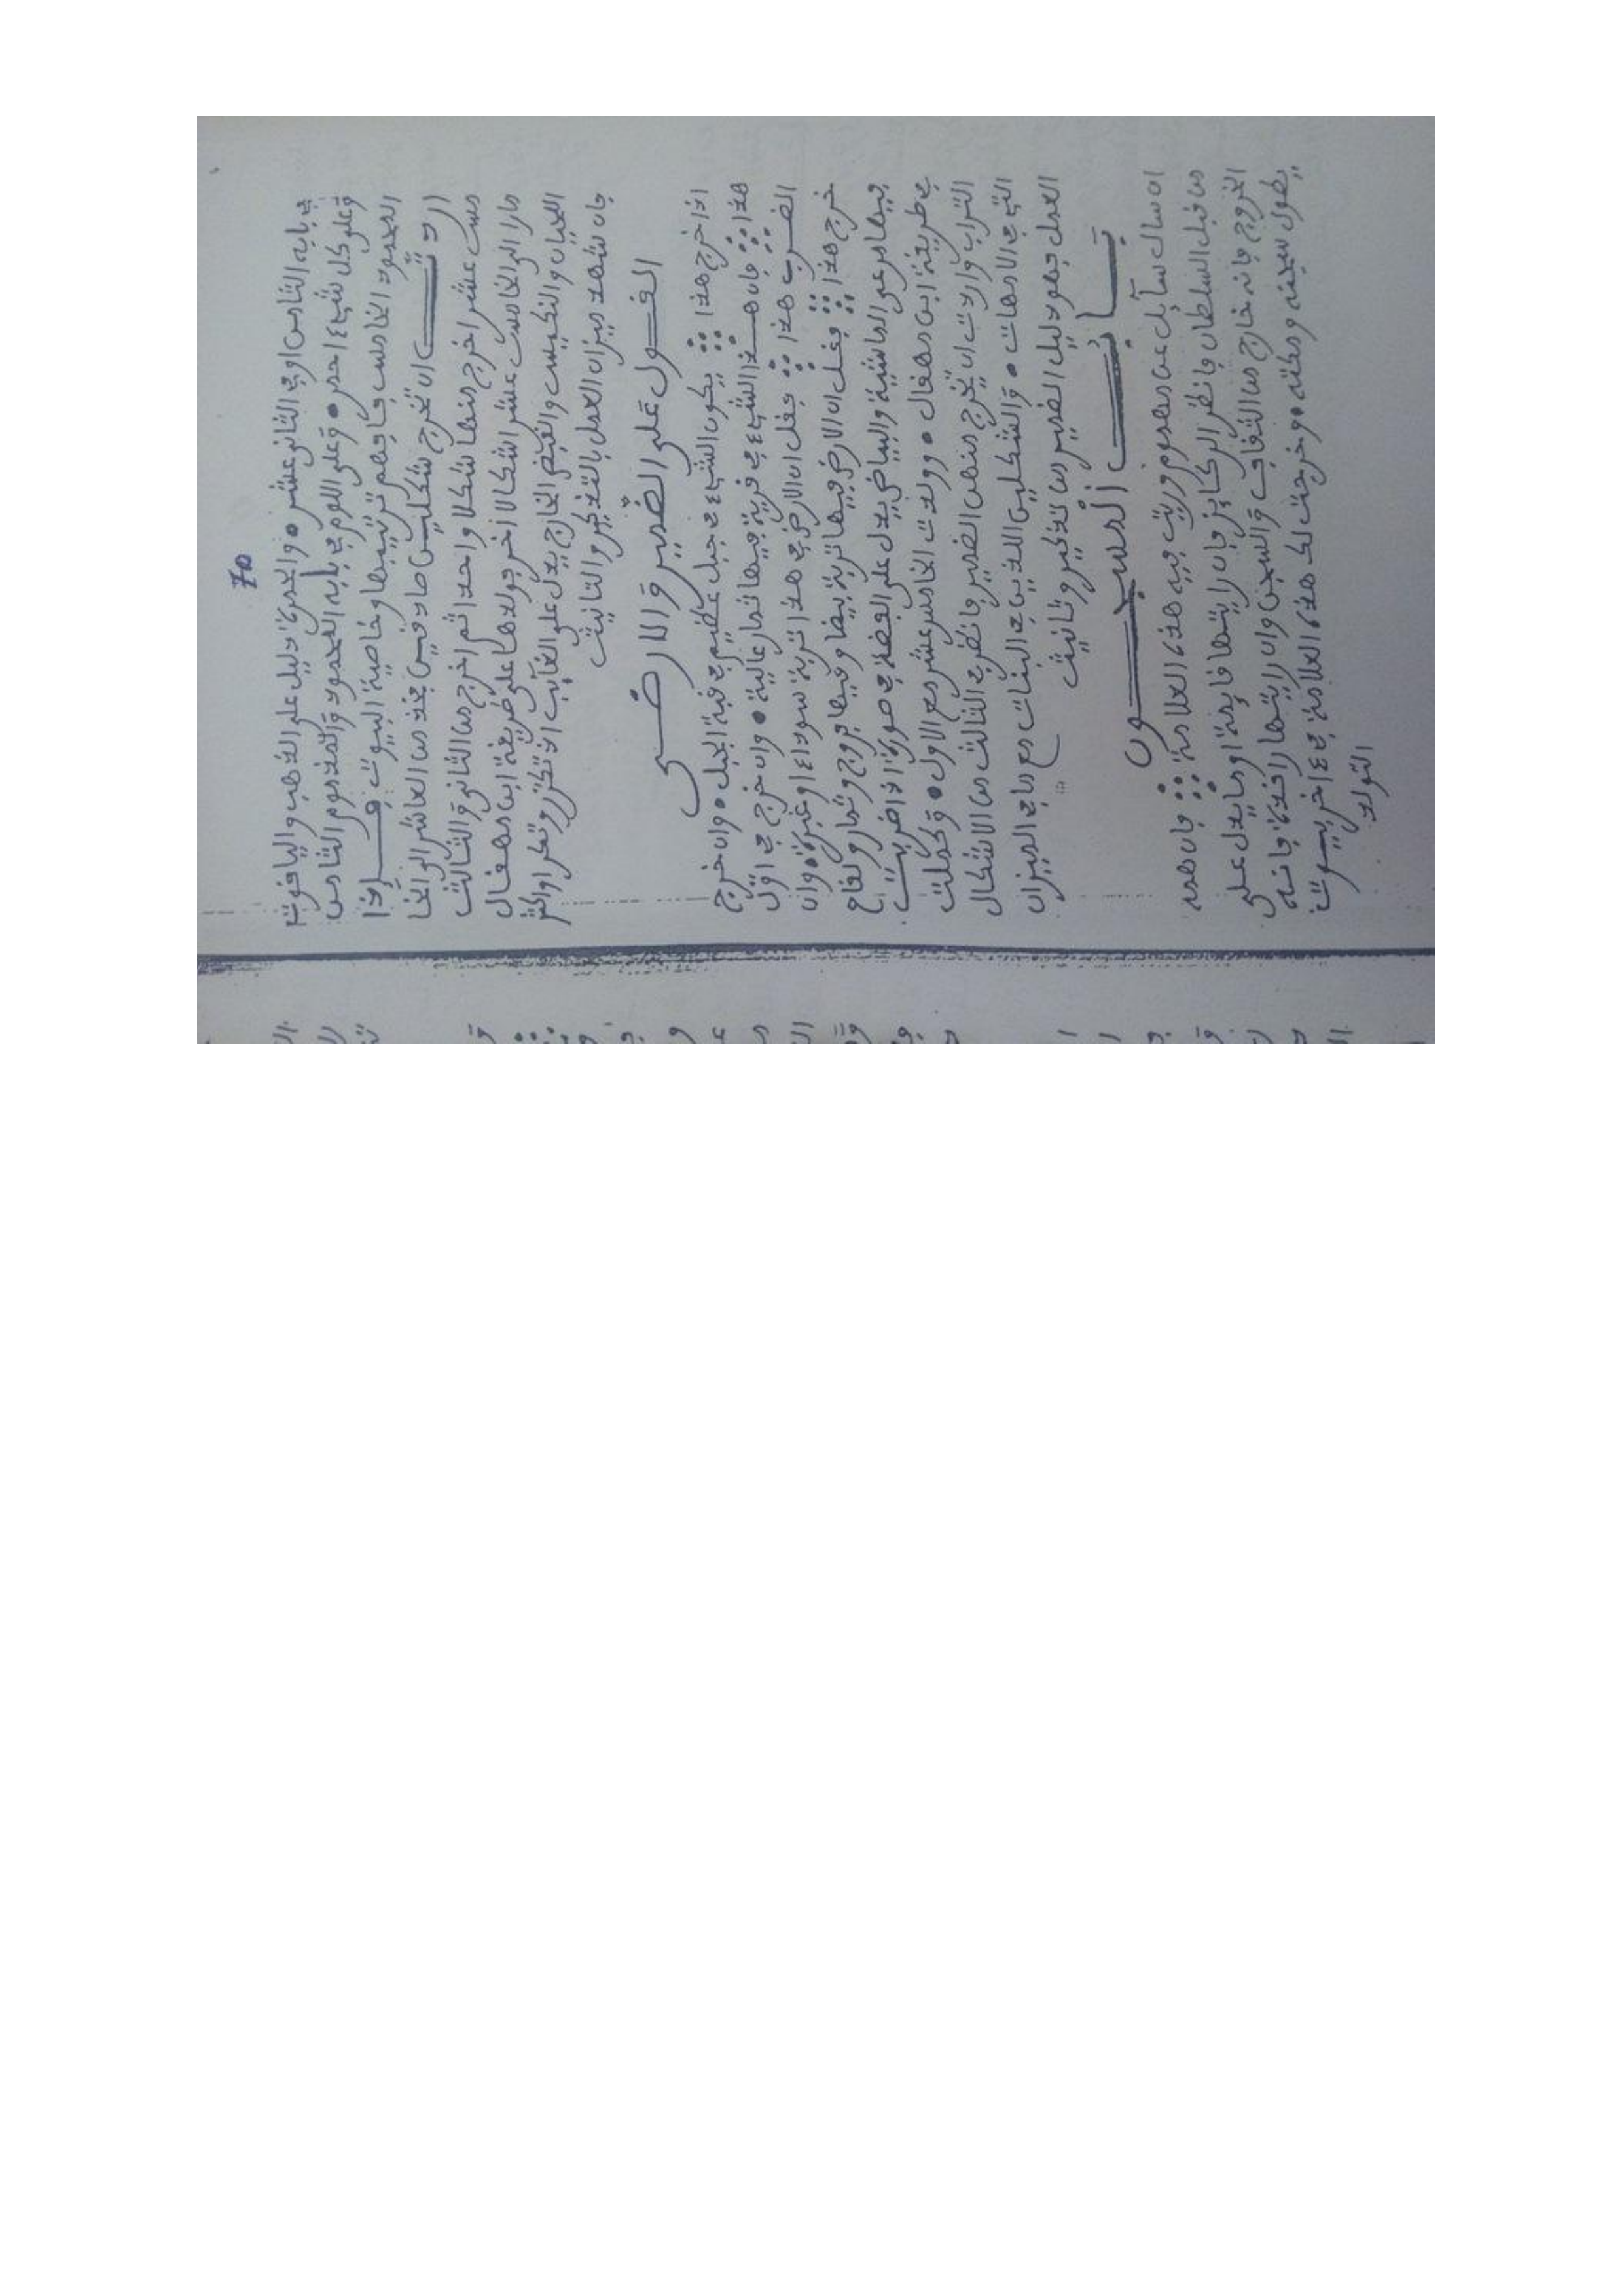 70
في بابه الثامن او في الثاني عشر • والحمرة دليل على الذهب والياقوت
وعلى كل شيء احمر • وعلى اللوم في بابه المحمود والمذموم الثامن
المحمود الخامس فافهم ترتيبها وخاصية البيوت فــــإذا
اردت ان تخرج شكلين صادقين فخذ من العاشر الى الخا
مس عشر اخرج منها شكلا واحدا ثم اخرج من الثاني والثالث
مارا الى الخامس عشر اشكالا اخر فولدها على طريقة ابن مهفال
اللحيان والنكيس والقبض الخارج يدل على الغايب اذ تكرر وتكرر اوالكثر
فان شهد ميزان العمل بالتذكير والتانيث
القــول على الضمير والارضــى
اذا خرج هذا يكون الشيء في جبل عظيم في قبة الجبل • وان خرج
هذا فان هــذا الشيء في قرية فيها ثمار عالية • وان خرج في اول
الضرب هذا فقل ان الارض في هذا تربة سوداء او غبرة • وان
خرج هذا فقل ان الارض فيها تربة بيضا وفيها فروج وثمار ولقاح
فيها مرعى الماشية والبياض يدل على الفضة في صورة اذا ضربت
في طريقة ابن مهفال • وولدت الخامس عشر مع الاول • وكملت
التراب وأردت ان تخرج منهن الضمير فانظر في الثالث من الاشكال
التي في الامهات • والشكلين اللذين في البنات مع مابه الميزان
العمل فهو دليل الضمير من تذكير وتانيث
بــــاب المسجــــون
ان سال سايل عن مهموم وريت فيه هذه العلامة فان هممه
من قبل السلطان فانظر الركايز فان رايتها قايمة او ما يدل على
الخروج فانه خارج من الثقاف والسجن وان رايتها راقدة فانــه
يطول سجنه ومكثه • وخرجت لك هذه العلامة في ءاخر بيــوت
التولد